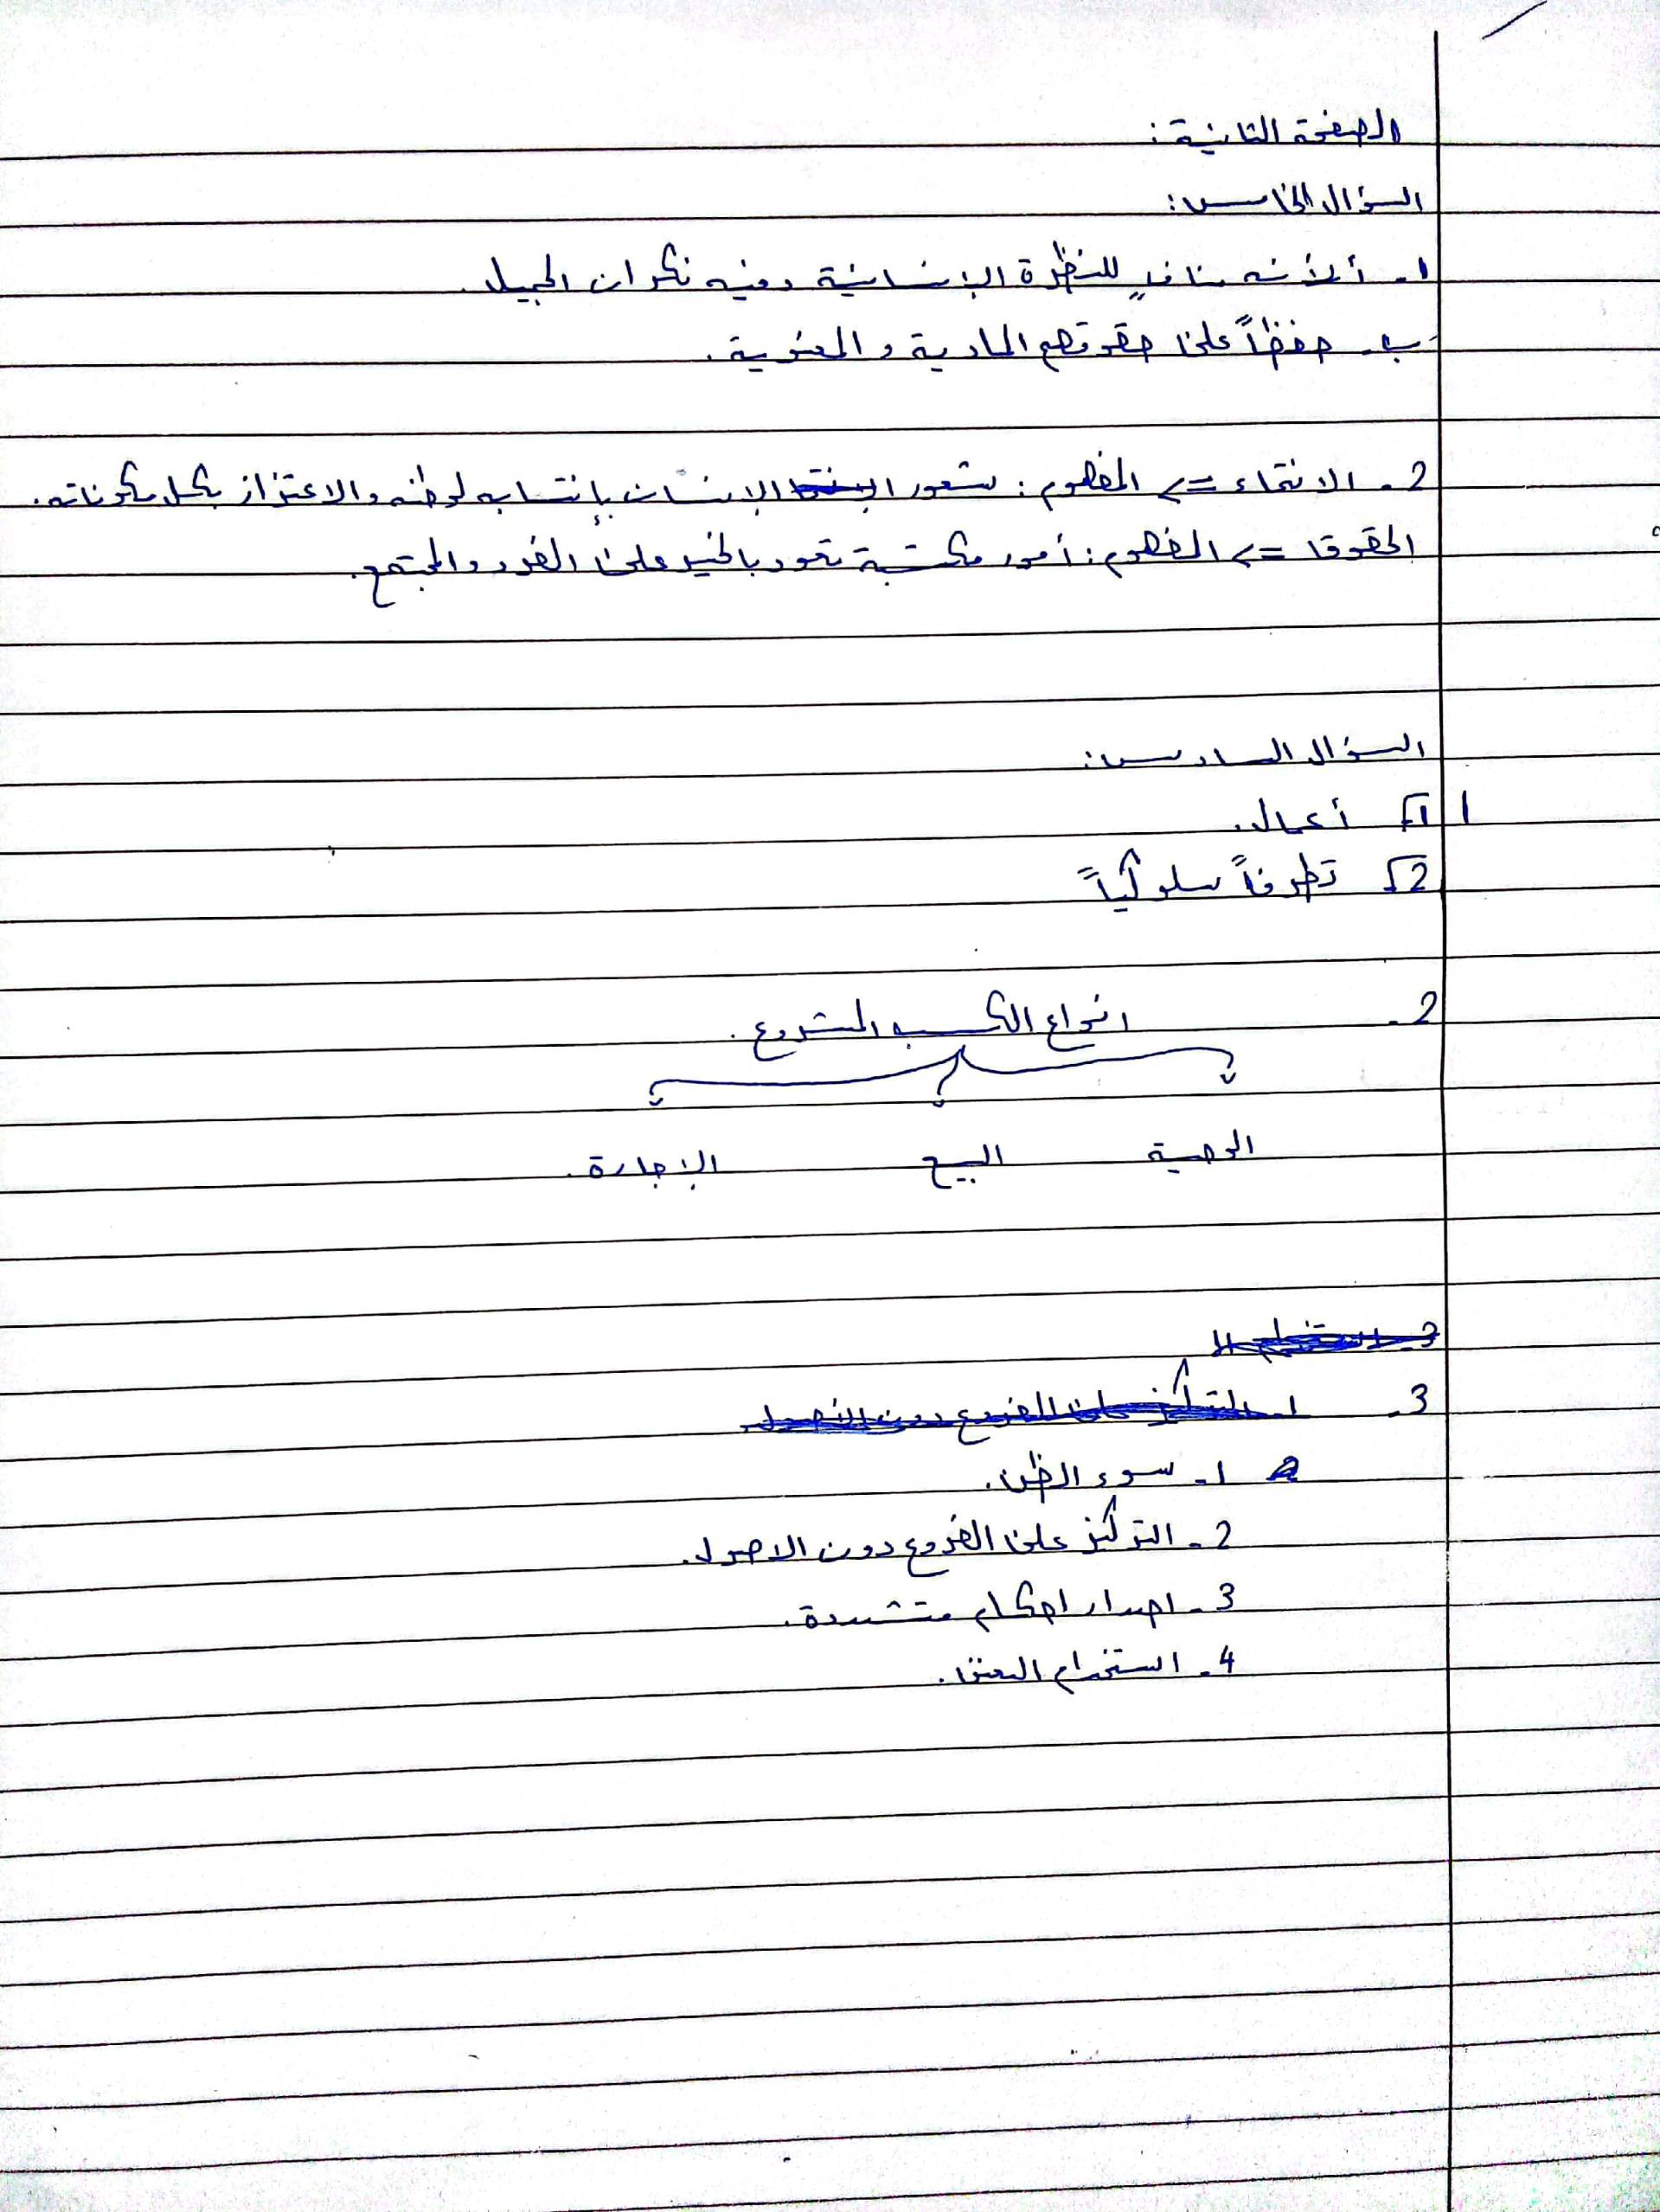 الصفحة الثانية:
السؤال الخامس:
1- أ- لأنه منافٍ للفطرة الإنسانية وفيه نكران الجميل.
ب- حفظاً على حقوقهم المادية و المعنوية.
2- الانتماء => المفهوم: شعور الإنسان بإنتسابه لوطنه والاعتزاز بكل مكوناته.
الحقوق => المفهوم: أمور مكتسبة تعود بالخير على الفرد والمجتمع.
السؤال السادس:
1 1 أعمال.
2 تطرفاً سلوكياً
2- انواع الكسب المشروع.
الوصية البيع الإجارة.
3- 1- التركيز على الفروع دون الأصول.
1- سوء الظن.
2- التركيز على الفروع دون الاصول.
3- اصدار احكام متشددة.
4- استخدام العنف.